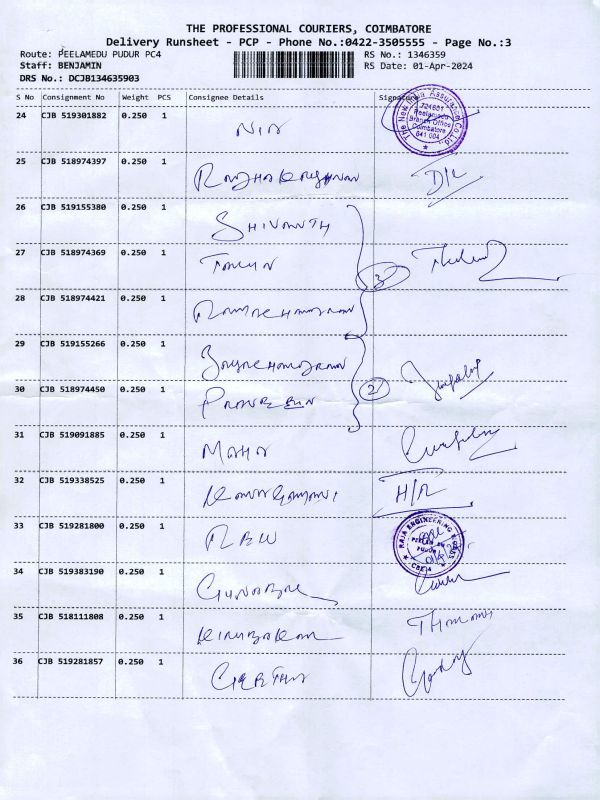 THE PROFESSIONAL COURIERS, COIMBATORE
Delivery Runsheet - PCP - Phone No.:0422-3505555 - Page No.:3
Route: PEELAMEDU PUDUR PC4 RS No.: 1346359
Staff: BENJAMIN RS Date: 01-Apr-2024
DRS No.: DCJB134635903
S No Consignment No Weight PCS Consignee Details Signature
24 CJB 519301882 0.250 1 NIA
The New India Assurance Co. Ltd.
724601
Peelamedu
Branch Office
Coimbatore
641 004
25 CJB 518974397 0.250 1 D/L
26 CJB 519155380 0.250 1
27 CJB 518974369 0.250 1 3
28 CJB 518974421 0.250 1 RAMACHANDRAN
29 CJB 519155266 0.250 1 JAYACHANDRAN
30 CJB 518974450 0.250 1 PRAVEEN 2
31 CJB 519091885 0.250 1 MAHA
32 CJB 519338525 0.250 1 H/R
33 CJB 519281800 0.250 1
RAJA ENGINEERING
34 CJB 519383190 0.250 1 GUNABAL
35 CJB 518111808 0.250 1 KIRUBAKAR
36 CJB 519281857 0.250 1 GEETHA